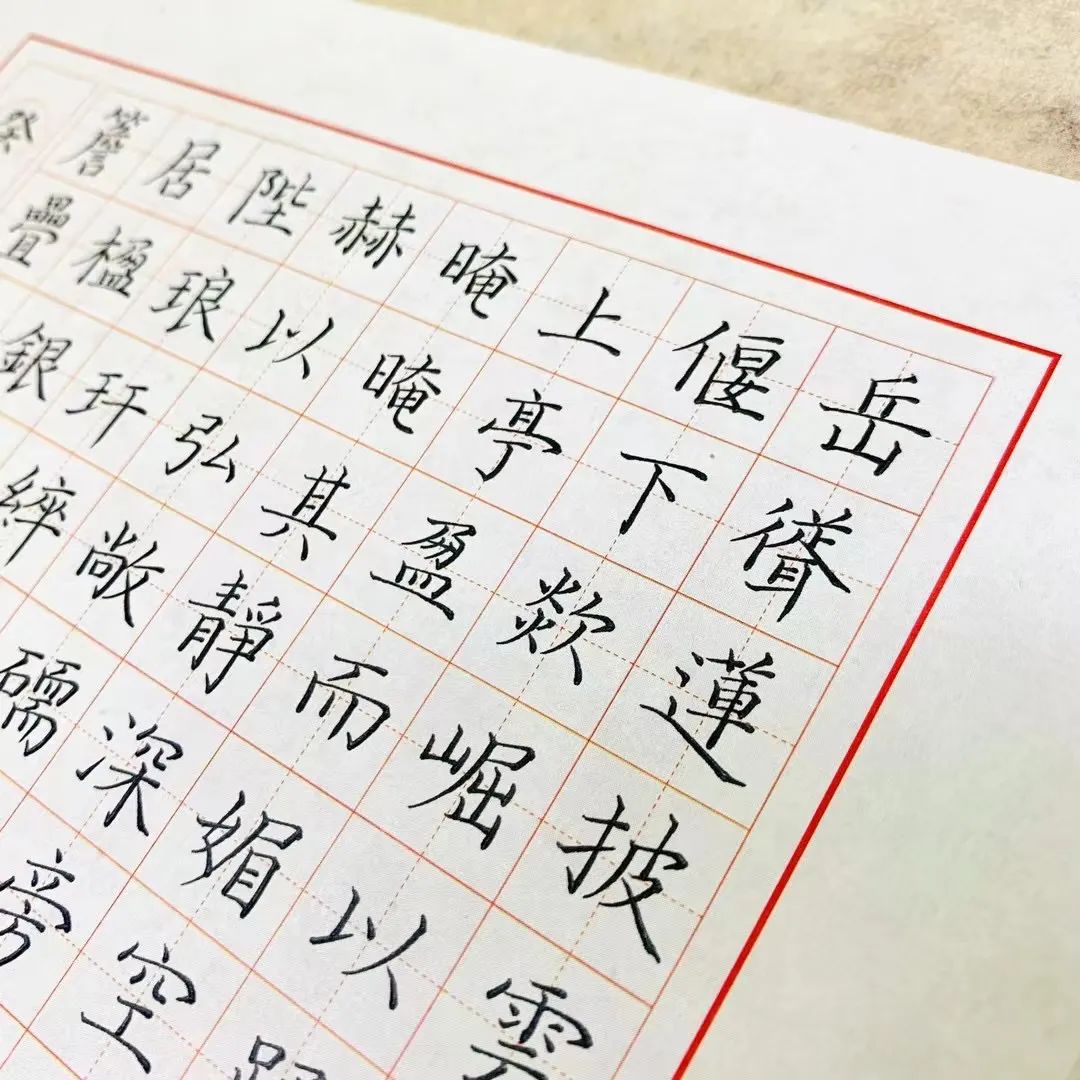 岳聳蓮披雲
偃下欻崛以
上亭盈而媚空
晻晻其靜深旁
赫以弘敞礝
陛琅玕綷
居楹銀
簷疊